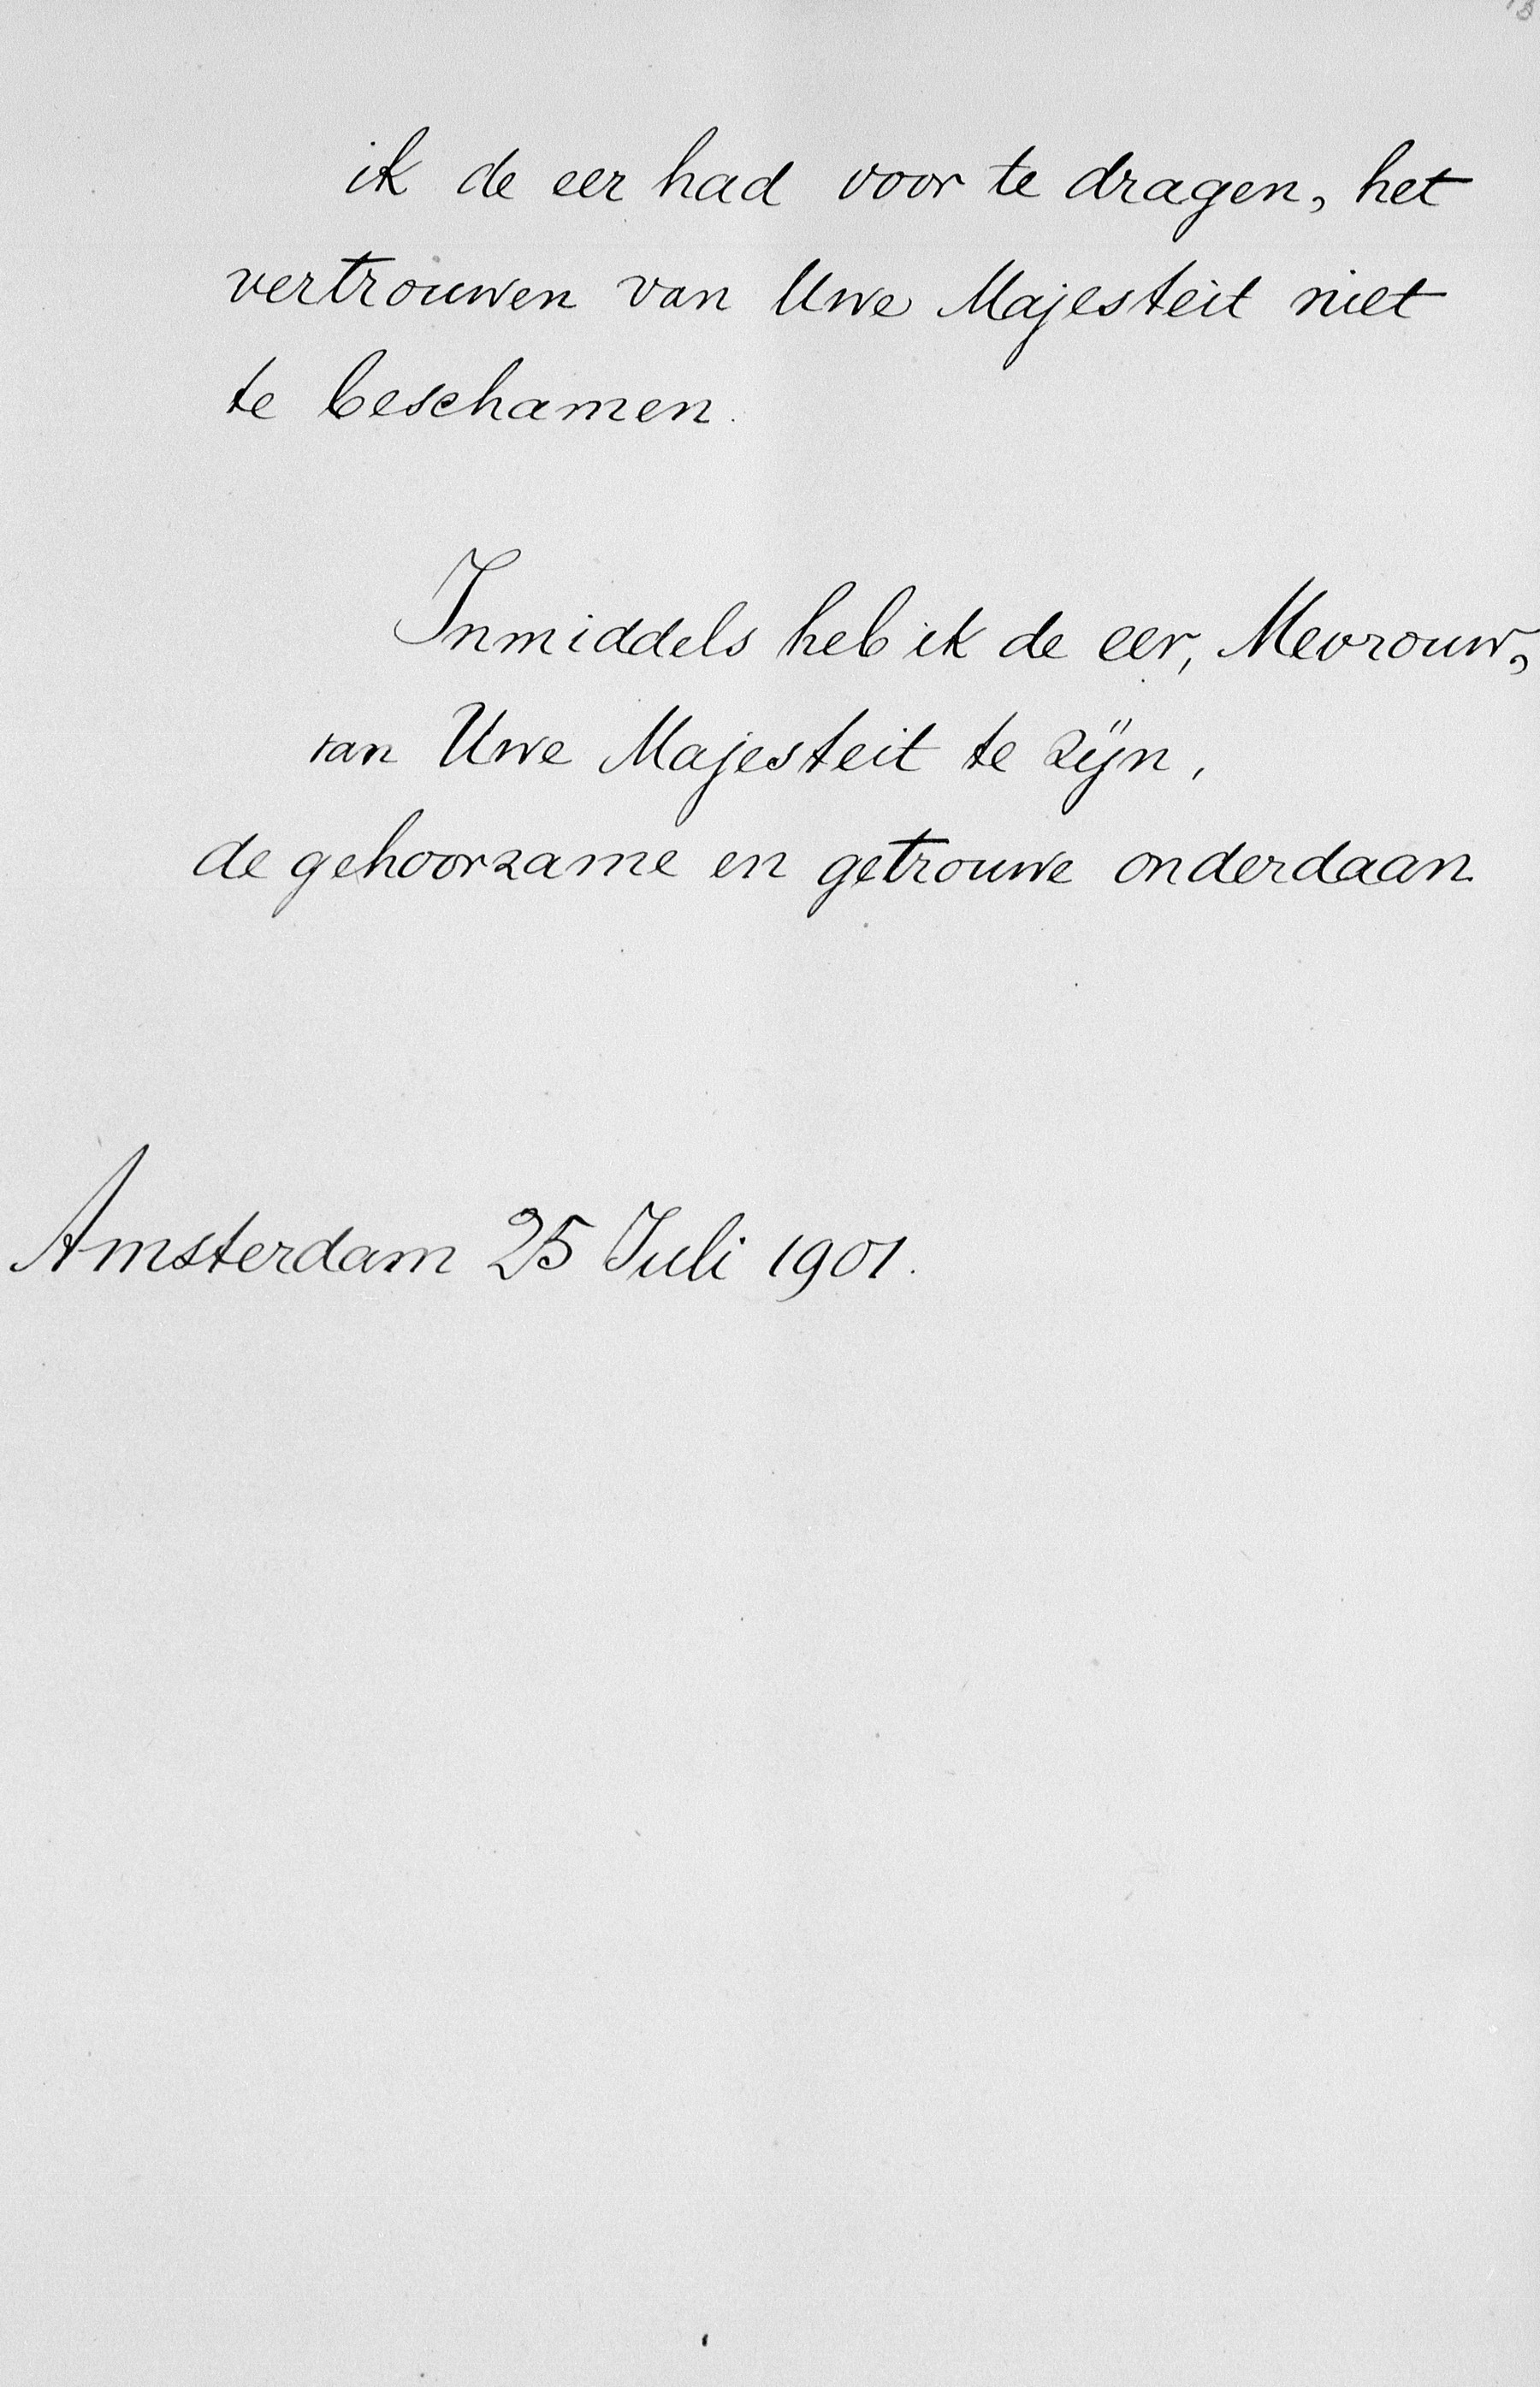 ik de eer had voor te dragen, het
vertrouwen van Uwe Majesteit niet
te beschamen.
Inmiddels heb ik de eer, Mevrouw,
van Uwe Majesteit te zijn,
de gehoorzame en getrouwe onderdaan.
Amsterdam 25 Juli 1901.